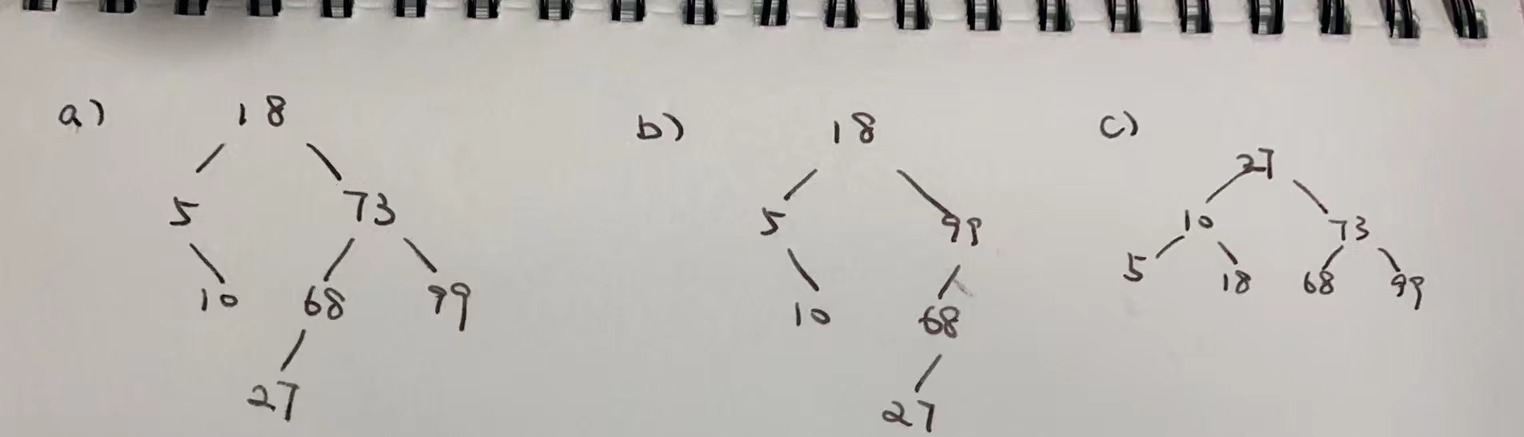 a) 18
5 73
10 68 99
27
b) 18
5 99
10 68
27
c) 27
10 73
5 18 68 99